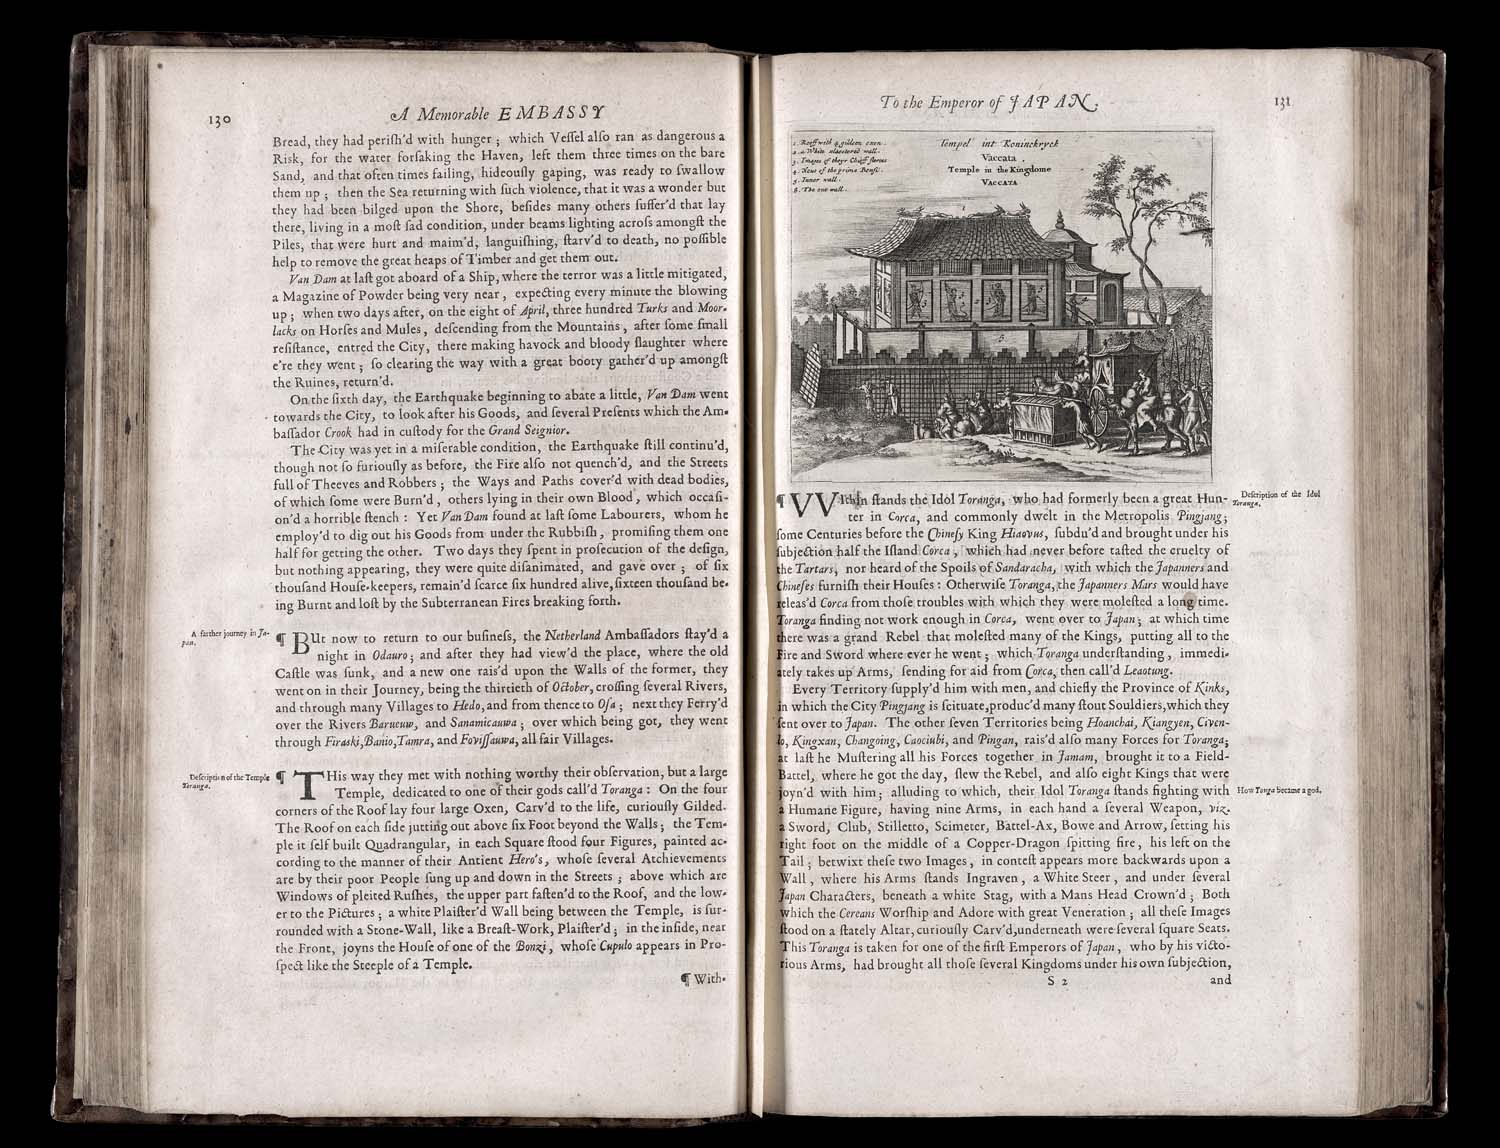 130
A Memorable EMBASSY
Bread, they had periſh'd with hunger ; which Veſſel alſo ran as dangerous a
Risk, for the water forſaking the Haven, left them three times on the bare
Sand, and that often times failing, hideouſly gaping, was ready to ſwallow
them up ; then the Sea returning with ſuch violence, that it was a wonder but
they had been bilged upon the Shore, beſides many others ſuffer'd that lay
there, living in a moſt ſad condition, under beams lighting acroſs amongſt the
Piles, that were hurt and maim'd, languiſhing, ſtarv'd to death, no poſſible
help to remove the great heaps of Timber and get them out.
Van Dam at laſt got aboard of a Ship, where the terror was a little mitigated,
a Magazine of Powder being very near , expecting every minute the blowing
up ; when two days after, on the eight of April, three hundred Turks and Moor-
lacks on Horſes and Mules , deſcending from the Mountains , after ſome ſmall
reſiſtance, entred the City, there making havock and bloody ſlaughter where
e're they went ; ſo clearing the way with a great booty gather'd up amongſt
the Ruines, return'd.
On the ſixth day, the Earthquake beginning to abate a little, Van Dam went
towards the City, to look after his Goods, and ſeveral Preſents which the Am-
baſſador Crook had in cuſtody for the Grand Seignior.
The City was yet in a miſerable condition, the Earthquake ſtill continu'd,
though not ſo furiouſly as before, the Fire alſo not quench'd, and the Streets
full of Theeves and Robbers ; the Ways and Paths cover'd with dead bodies,
of which ſome were Burn'd , others lying in their own Blood , which occaſi-
on'd a horrible ſtench : Yet Van Dam found at laſt ſome Labourers, whom he
employ'd to dig out his Goods from under the Rubbiſh , promiſing them one
half for getting the other. Two days they ſpent in proſecution of the deſign,
but nothing appearing, they were quite diſanimated, and gave over ; of ſix
thouſand Houſe-keepers, remain'd ſcarce ſix hundred alive, ſixteen thouſand be-
ing Burnt and loſt by the Subterranean Fires breaking forth.
A farther journey in Ja-
pan.
¶ BUt now to return to our buſineſs, the Netherland Ambaſſadors ſtay'd a
night in Odauro ; and after they had view'd the place, where the old
Caſtle was ſunk, and a new one rais'd upon the Walls of the former, they
went on in their Journey, being the thirtieth of October, croſſing ſeveral Rivers,
and through many Villages to Hedo, and from thence to Oſa ; next they Ferry'd
over the Rivers Barucuw, and Sanamicauwa ; over which being got, they went
through Firaski, Banio, Tamra, and Foviſſauwa, all fair Villages.
Deſcription of the Temple
Toranga.
¶ THis way they met with nothing worthy their obſervation, but a large
Temple, dedicated to one of their gods call'd Toranga : On the four
corners of the Roof lay four large Oxen, Carv'd to the life, curiouſly Gilded.
The Roof on each ſide jutting out above ſix Foot beyond the Walls ; the Tem-
ple it ſelf built Quadrangular, in each Square ſtood four Figures, painted ac-
cording to the manner of their Antient Hero's, whoſe ſeveral Atchievements
are by their poor People ſung up and down in the Streets ; above which are
Windows of pleited Ruſhes, the upper part faſten'd to the Roof, and the low-
er to the Pictures ; a white Plaiſter'd Wall being between the Temple, is ſur-
rounded with a Stone-Wall, like a Breaſt-Work, Plaiſter'd ; in the inſide, near
the Front, joyns the Houſe of one of the Bonzi, whoſe Cupulo appears in Pro-
ſpect like the Steeple of a Temple.
¶ With-
To the Emperor of JAPAN.
131
1. Roeff with 4 gilden oxen.
2. a White plastered wall.
3. Images of theyr Chieff Heroes
4. Hous of the prime Bonsii.
5. Inner wall.
6. The one wall.
Tempel int Koninckryck
Vaccata .
Temple in the Kingdome
VACCATA
1
5
¶ WIthin ſtands the Idol Toranga, who had formerly been a great Hun-
ter in Corca, and commonly dwelt in the Metropolis Pingjang ;
ſome Centuries before the Chineſy King Hiaovus, ſubdu'd and brought under his
ſubjection half the Iſland Corca , which had never before taſted the cruelty of
the Tartars, nor heard of the Spoils of Sandaracha, with which the Japanners and
Chineſes furniſh their Houſes : Otherwiſe Toranga, the Japanners Mars would have
releas'd Corca from thoſe troubles with which they were moleſted a long time.
Toranga finding not work enough in Corca, went over to Japan ; at which time
there was a grand Rebel that moleſted many of the Kings, putting all to the
Fire and Sword where ever he went ; which Toranga underſtanding , immedi-
ately takes up Arms, ſending for aid from Corca, then call'd Leaotung.
Deſcription of the Idol
Toranga.
Every Territory ſupply'd him with men, and chiefly the Province of Kinks,
in which the City Pingjang is ſcituate, produc'd many ſtout Souldiers, which they
ſent over to Japan. The other ſeven Territories being Hoanchai, Kiangyen, Civen-
lo, Kingxan, Changoing, Caociubi, and Pingan, rais'd alſo many Forces for Toranga ;
at laſt he Muſtering all his Forces together in Jamam, brought it to a Field-
Battel, where he got the day, ſlew the Rebel, and alſo eight Kings that were
joyn'd with him ; alluding to which, their Idol Toranga ſtands fighting with
a Humane Figure, having nine Arms, in each hand a ſeveral Weapon, viz.
a Sword, Club, Stilletto, Scimeter, Battel-Ax, Bowe and Arrow, ſetting his
right foot on the middle of a Copper-Dragon ſpitting fire, his left on the
Tail ; betwixt theſe two Images , in conteſt appears more backwards upon a
Wall , where his Arms ſtands Ingraven , a White Steer , and under ſeveral
Japan Characters, beneath a white Stag, with a Mans Head Crown'd ; Both
which the Cereans Worſhip and Adore with great Veneration ; all theſe Images
ſtood on a ſtately Altar, curiouſly Carv'd, underneath were ſeveral ſquare Seats.
This Toranga is taken for one of the firſt Emperors of Japan , who by his victo-
rious Arms, had brought all thoſe ſeveral Kingdoms under his own ſubjection,
How Tonga became a god.
S 2
and